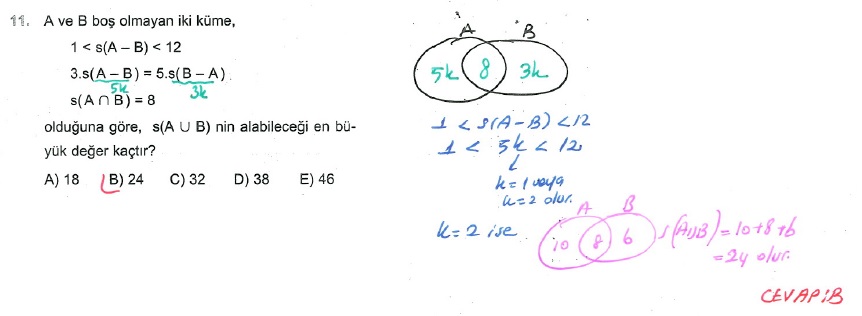 11. A ve B boş olmayan iki küme,
1 < s(A – B) < 12
3.s(A – B) = 5.s(B – A)
5k 3k
s(A ∩ B) = 8
olduğuna göre, s(A ∪ B) nin alabileceği en bü-
yük değer kaçtır?
A) 18 B) 24 C) 32 D) 38 E) 46
A B
5k 8 3k
1 < s(A-B) < 12
1 < 5k < 12
k=1 veya
k=2 olur.
k=2 ise
A B
10 8 6
s(A∪B) = 10+8+6
= 24 olur.
CEVAP:B